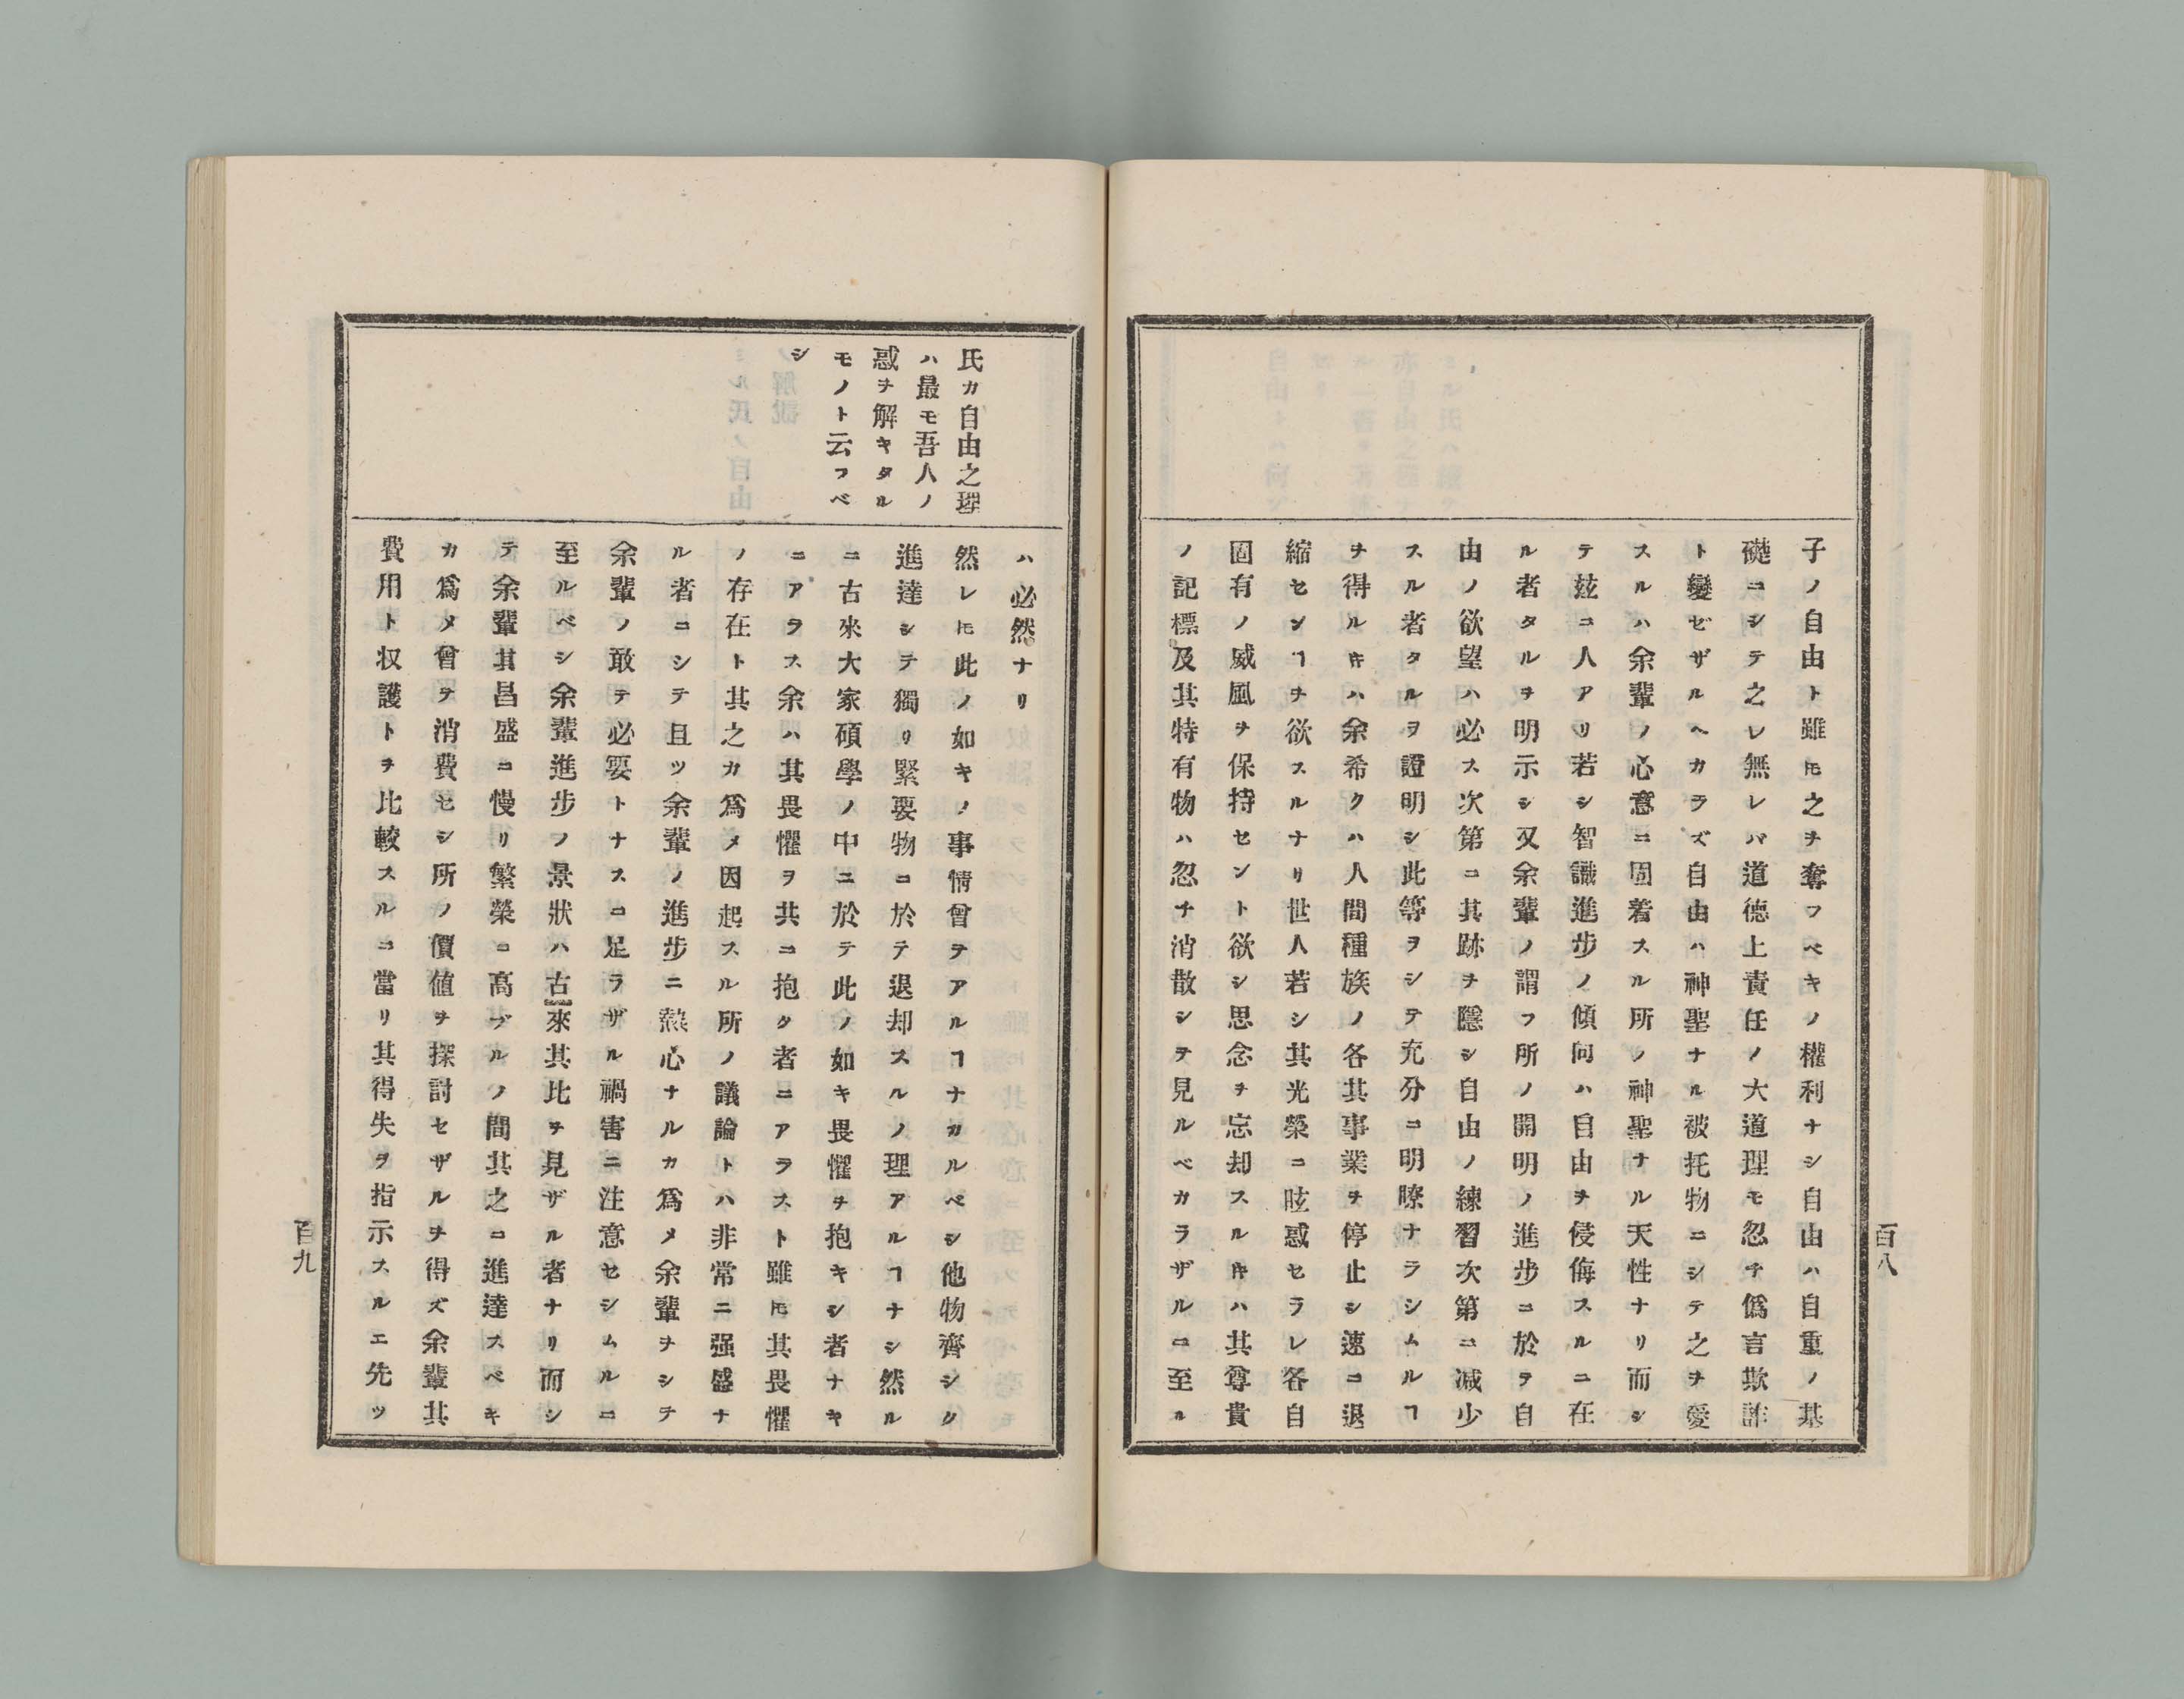 百八
子ノ自由ト雖𪜈之ヲ奪フベキノ權利ナシ自由ハ自重ノ基
礎ニシテ之レ無レバ道德上責任ノ大道理モ忽チ僞言欺詐
ト變ゼザルヘカラズ自由ハ神聖ナル被托物ニシテ之ヲ愛
スルハ余輩ノ心意ニ固着スル所ノ神聖ナル天性ナリ而シ
テ玆ニ人アリ若シ智識進步ノ傾向ハ自由ヲ侵侮スルニ在
ル者タルヲ明示シ又余輩ノ謂フ所ノ開明ノ進步ニ於テ自
由ノ欲望ハ必ス次第ニ其跡ヲ隱シ自由ノ練習次第ニ減少
スル者タルヲ證明シ此等ヲシテ充分ニ明瞭ナラシムルヿ
ヲ得ルキハ余希クハ人間種族ノ各其事業ヲ停止シ速ニ退
縮センヿヲ欲スルナリ世人若シ其光榮ニ眩惑セラレ各自
固有ノ威風ヲ保持セント欲シ思念ヲ忘却スルキハ其尊貴
ノ記標及其特有物ハ忽チ消散シテ見ルベカラザルニ至ル
氏カ自由之理
ハ最モ吾人ノ
惑ヲ解キタル
モノト云フベ
シ
ハ必然ナリ
然レ𪜈此ノ如キノ事情曾テアルヿナカルベシ他物齊シク
進達シテ獨リ緊要物ニ於テ退却スルノ理アルヿナシ然ル
ニ古來大家碩學ノ中ニ於テ此ノ如キ畏懼ヲ抱キシ者ナキ
ニアラス余ハ其畏懼ヲ共ニ抱ク者ニアラスト雖𪜈其畏懼
ノ存在ト其之カ爲メ因起スル所ノ議論トハ非常ニ强盛ナ
ル者ニシテ且ツ余輩ノ進步ニ熱心ナルカ爲メ余輩ヲシテ
余輩ノ敢テ必要トナスニ足ラザル禍害ニ注意セシムルニ
至ルベシ余輩進步フ景狀ハ古來其比ヲ見ザル者ナリ而シ
テ余輩其昌盛ニ慢リ繁榮ニ高ブルノ間其之ニ進達スベキ
カ爲メ曾ヲ消費セシ所ノ價値ヲ探討セザルヲ得ズ余輩其
費用ト収護トヲ比較スルニ當リ其得失ヲ指示スルエ先ツ
百九